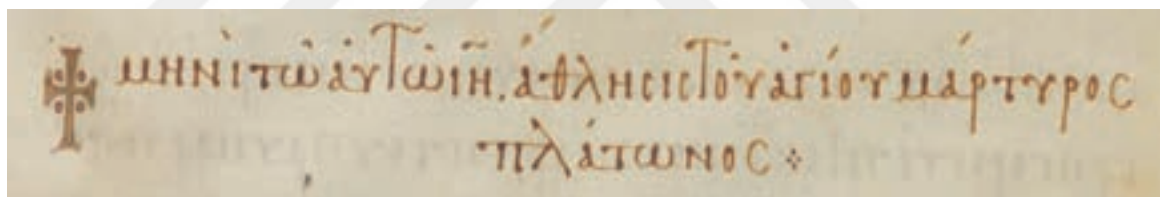 ☩ μηνὶ τῶ ἀυτῶ ιη̄. ἄθλησις τοῦ ἁγίου μάρτυρος
πλάτωνος ⁘